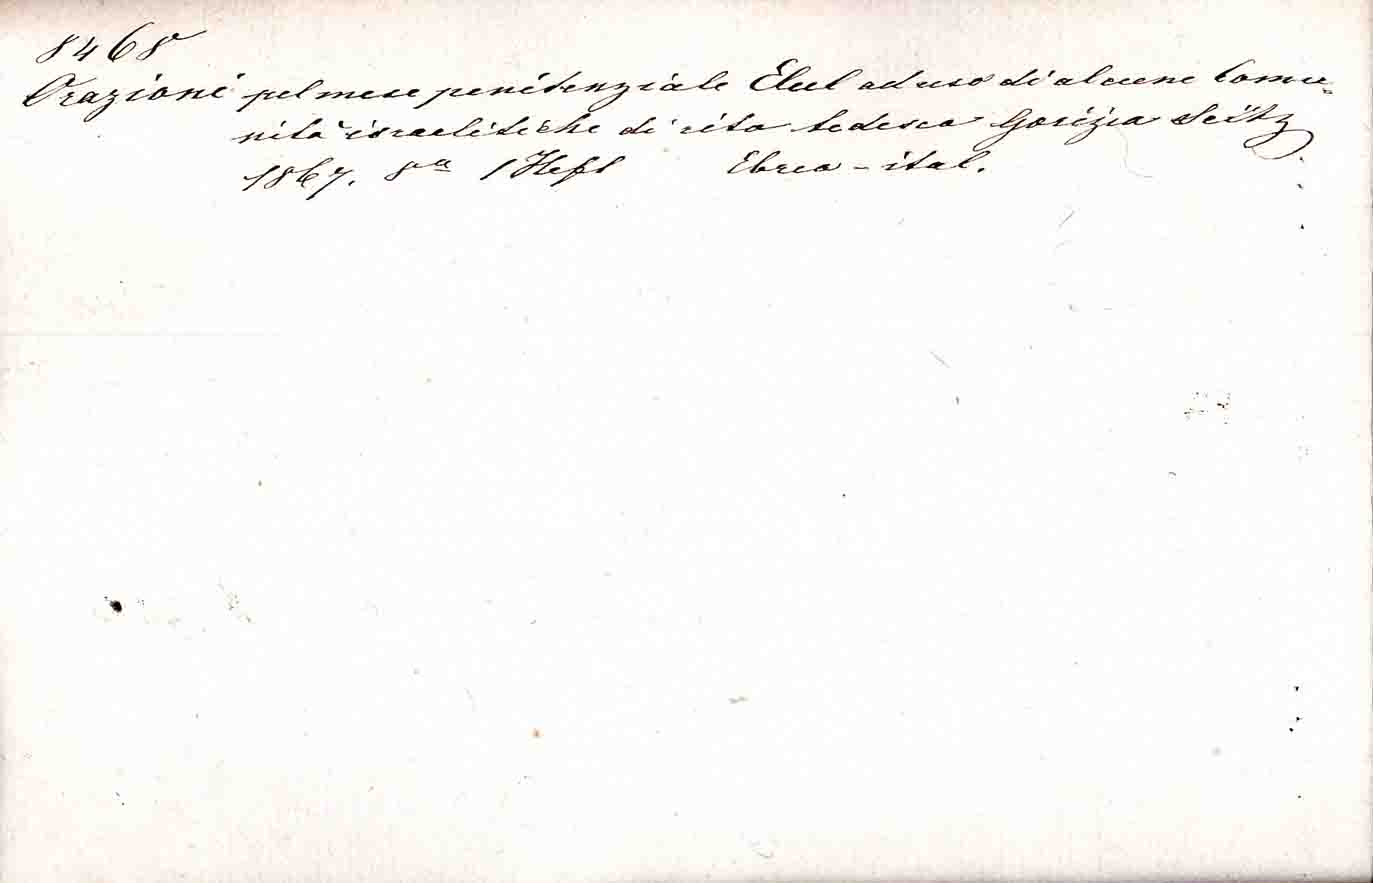 8468
Orazioni pel mese penitenziale Elul ad uso di alcune Comu=
nità israelitiche di rito tedesco Gorizia Seitz
1867. 8° 1 Heft Ebreo-ital.